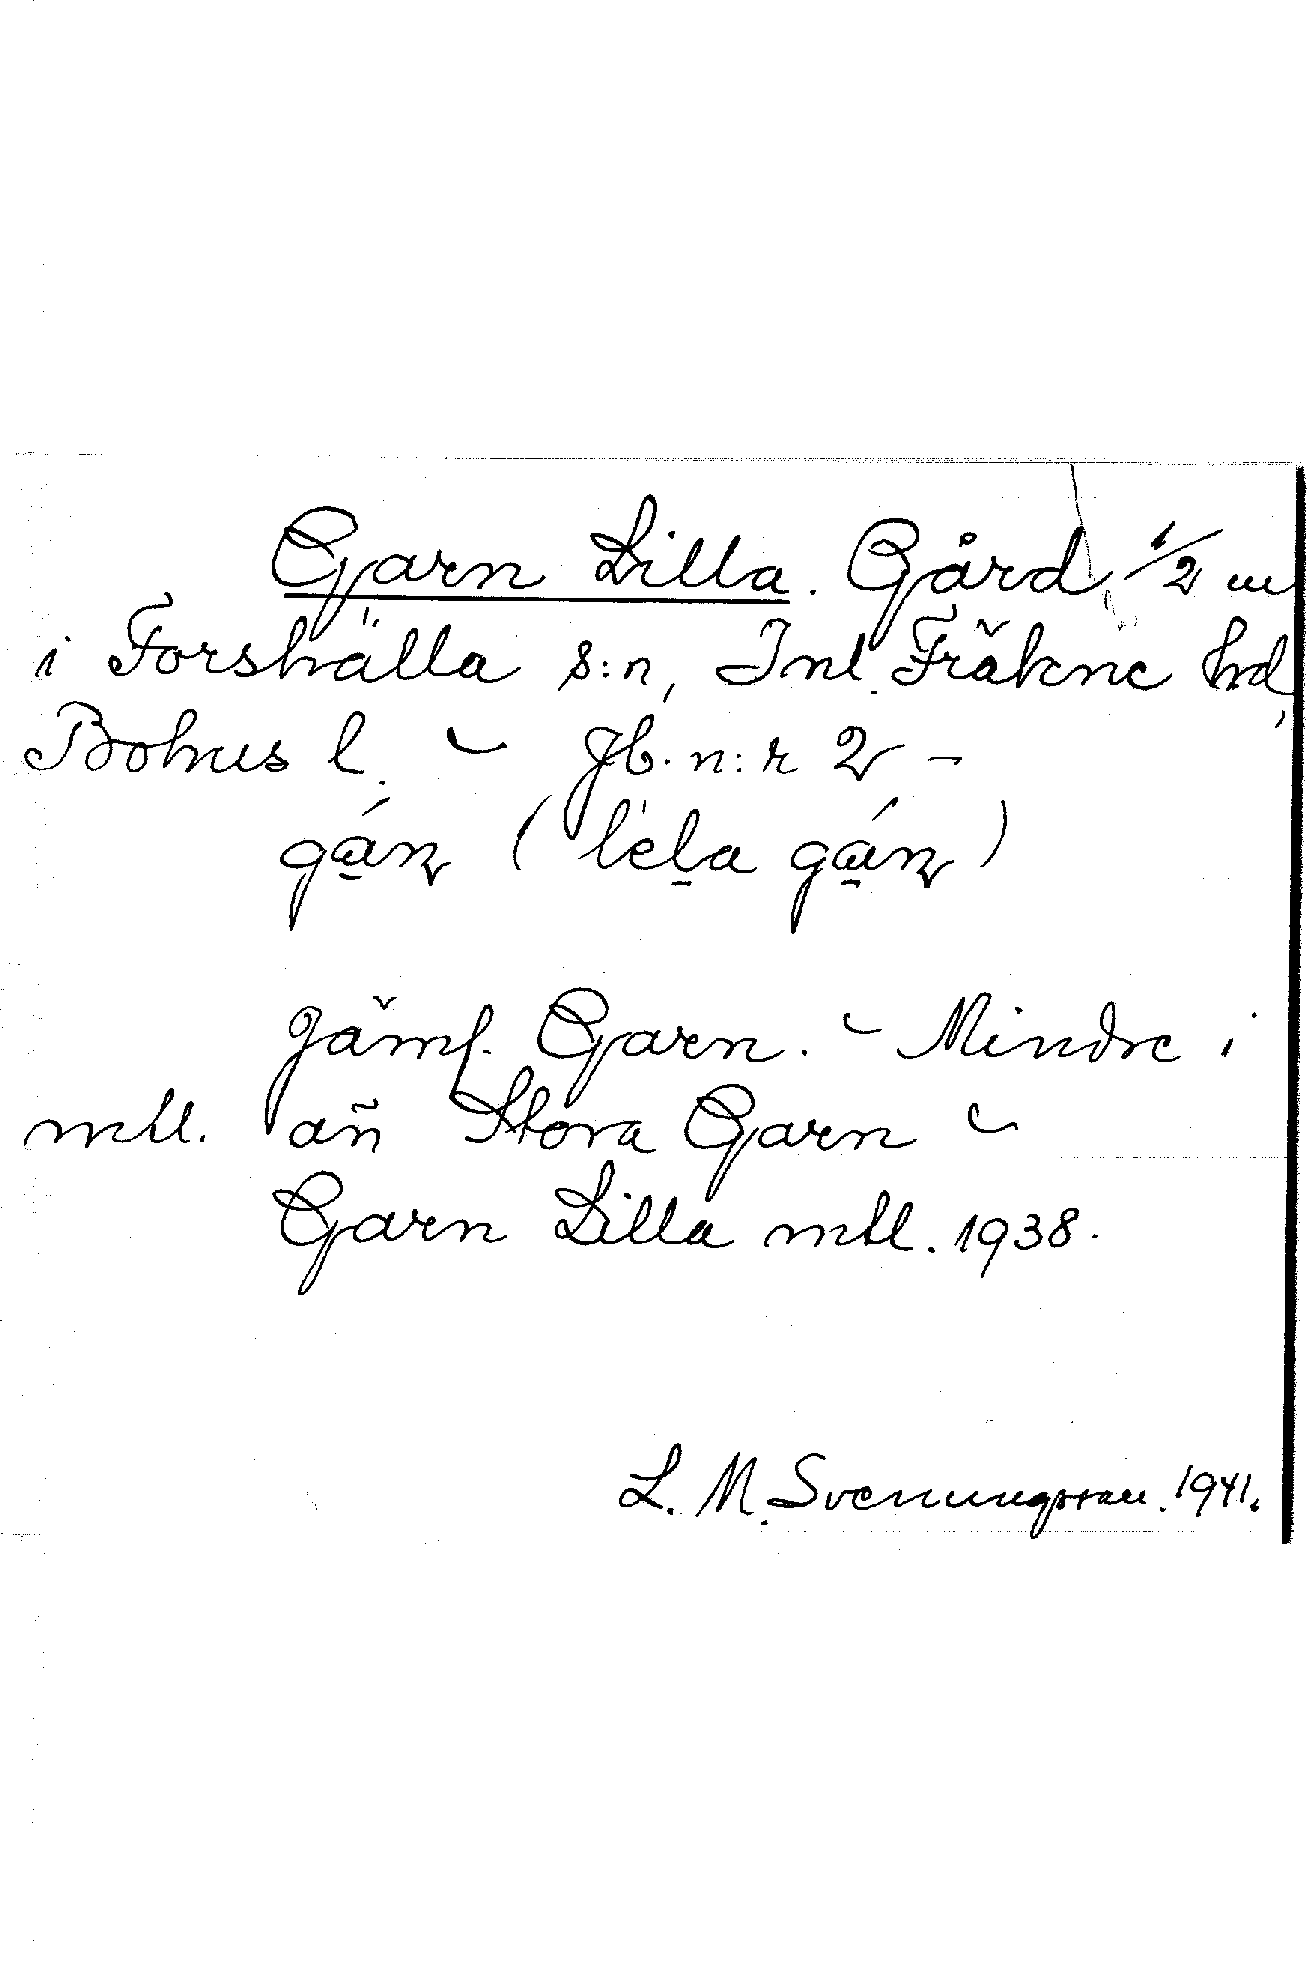 Garn Lilla. Gård, 1/2 m
i Forshälla s:n, Inl. Fräkne hd,
Bohus l. – Jb. n:r 2 –
gán ( lela gán )
Jämf. Garn. – Mindre i
mtl. än Stora Garn –
Garn Lilla mtl. 1938.
L. M. Svenungsson. 1941.